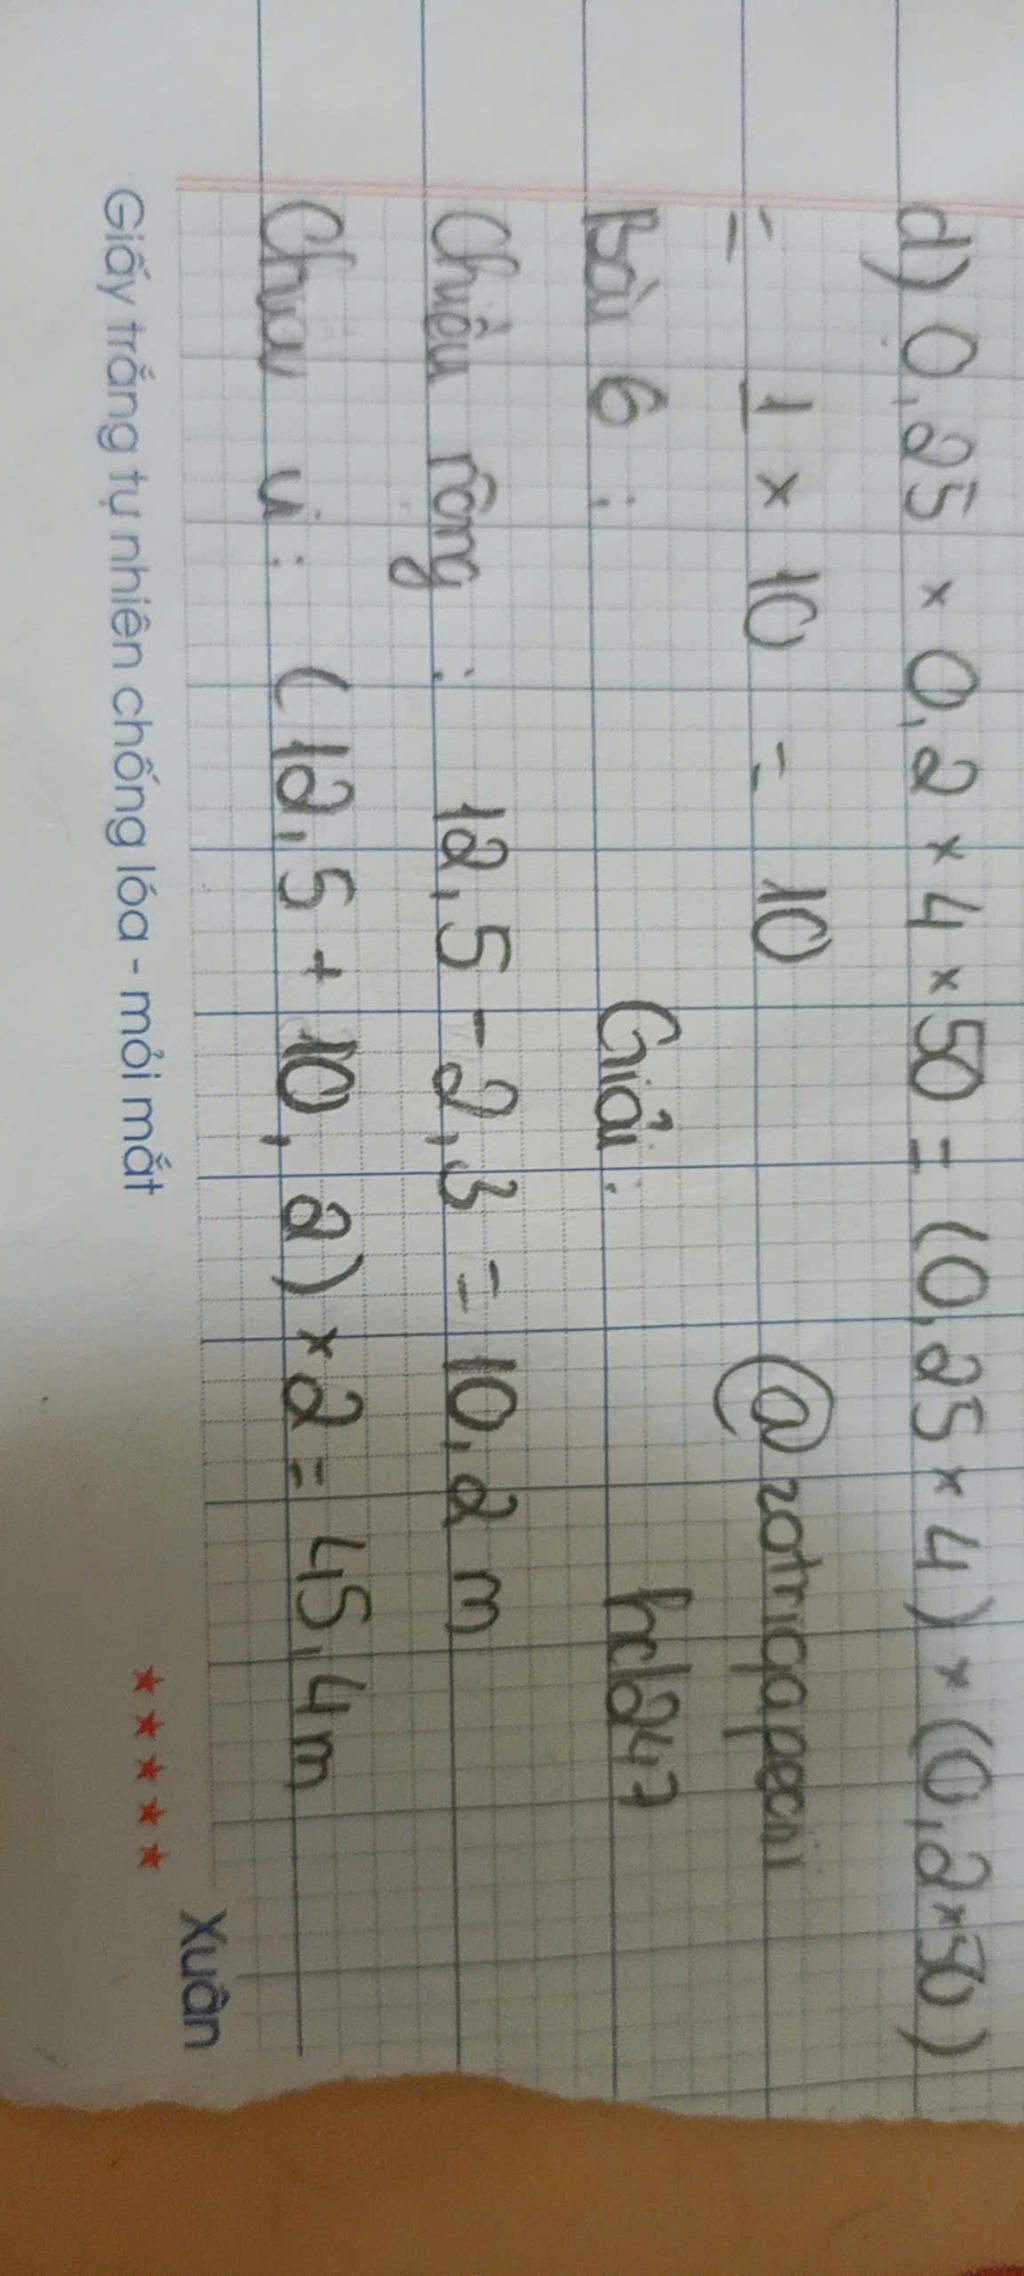 d) 0,25 × 0,2 × 4 × 50 = (0,25 × 4) × (0,2 × 50)
= 1 × 10 = 10 @zotriqapechi
Bài 6 : Giải: hcl247
Chiều rộng : 12,5 - 2,3 = 10,2 m
Chu vi : (12,5 + 10,2) × 2 = 45,4m
Giấy trắng tự nhiên chống lóa - mỏi mắt
Xuân